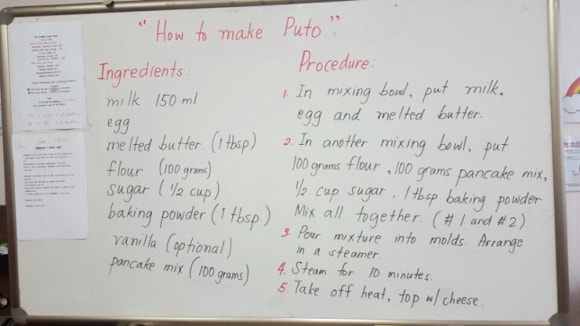 "How to make Puto"
Ingredients:
milk 150 ml
egg
melted butter (1 tbsp)
flour (100 grams)
sugar (1/2 cup)
baking powder (1 tbsp.)
vanilla (optional)
pancake mix (100 grams)
Procedure:
1. In mixing bowl, put milk,
egg and melted butter.
2. In another mixing bowl, put
100 grams flour, 100 grams pancake mix,
1/2 cup sugar, 1 tbsp baking powder
Mix all together. (#1 and #2)
3. Pour mixture into molds. Arrange
in a steamer.
4. Steam for 10 minutes.
5. Take off heat, top w/ cheese.